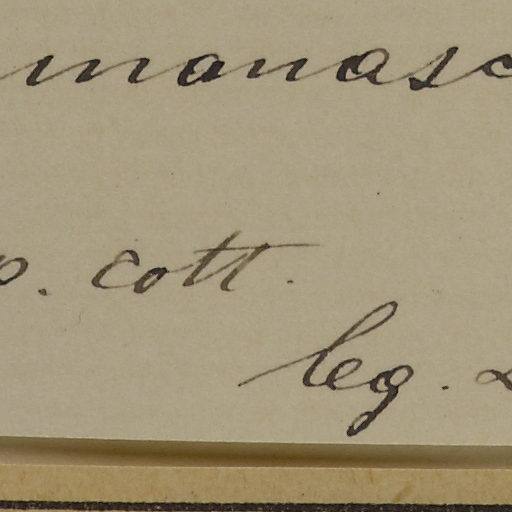 manasc
o. cott.
leg.